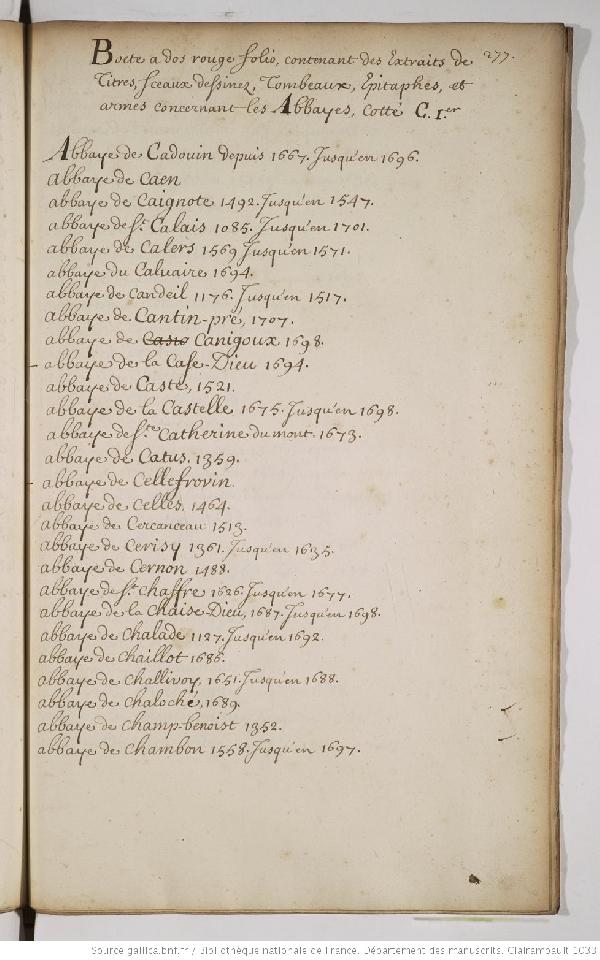 Boete a dos rouge folio, contenant des Extraits de 277.
Titres, sceaux dessinez, Tombeaux, Epitaphes, et
armes concernant les Abbayes, Cotté C. 1.er
Abbaye de Cadouin depuis 1667. Jusqu'en 1696.
abbaye de Caen
abbaye de Caignote 1492. Jusqu'en 1547.
abbaye de St. Calais 1085. Jusqu'en 1701.
abbaye de Calers 1569 Jusqu'en 1571.
abbaye du Caluaire 1694.
abbaye de Candeil 1176. Jusqu'en 1517.
abbaye de Cantin-pré, 1707.
abbaye de Canigoux 1698.
abbaye de la Case-Dieu 1694.
abbaye de Caste, 1521.
abbaye de la Castelle 1675. Jusqu'en 1698.
abbaye de Ste. Catherine du mont 1673.
abbaye de Catus. 1359.
abbaye de Cellefrovin.
abbaye de Celles. 1464.
abbaye de Cercanceau 1513.
abbaye de Cerisy 1361. Jusqu'en 1635.
abbaye de Cernon 1488.
abbaye de St. Chaffre 1626. Jusqu'en 1677.
abbaye de la Chaise-Dieu, 1687. Jusqu'en 1698.
abbaye de Chalade 1127. Jusqu'en 1692.
abbaye de Chaillot 1686.
abbaye de Challivoy, 1651. Jusqu'en 1688.
abbaye de Chaloché, 1689.
abbaye de Champ-benoist 1352.
abbaye de Chambon 1558. Jusqu'en 1697.
Source gallica.bnf.fr / Bibliothèque nationale de France. Département des manuscrits. Clairambault 1033